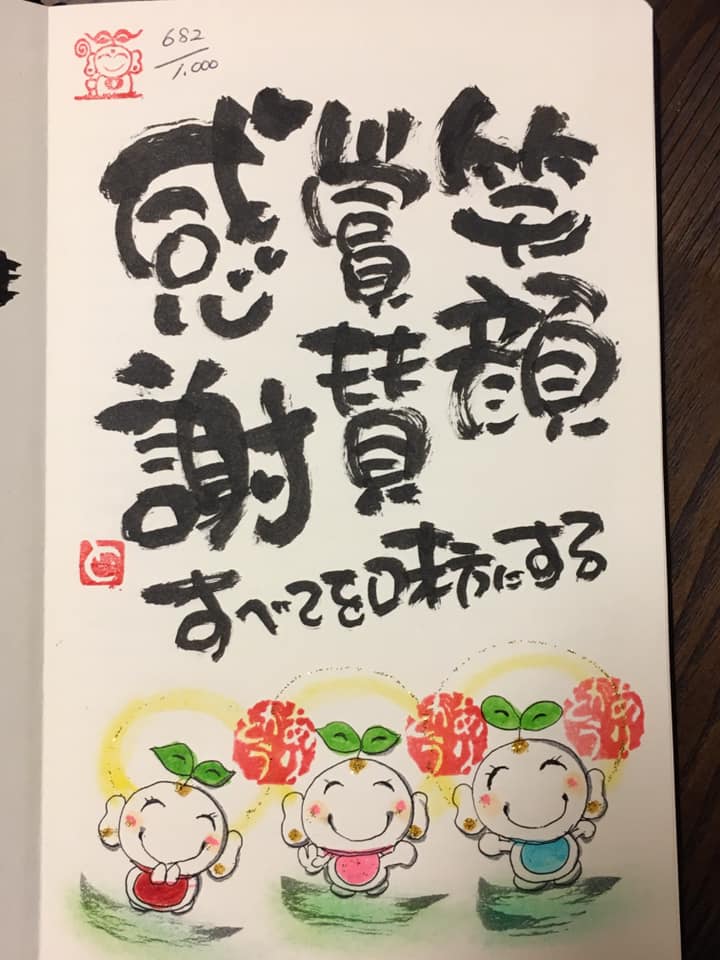 682
1.000
笑顔
賞賛
感謝
すべてを味方にする
ありがとう
ありがとう
ありがとう